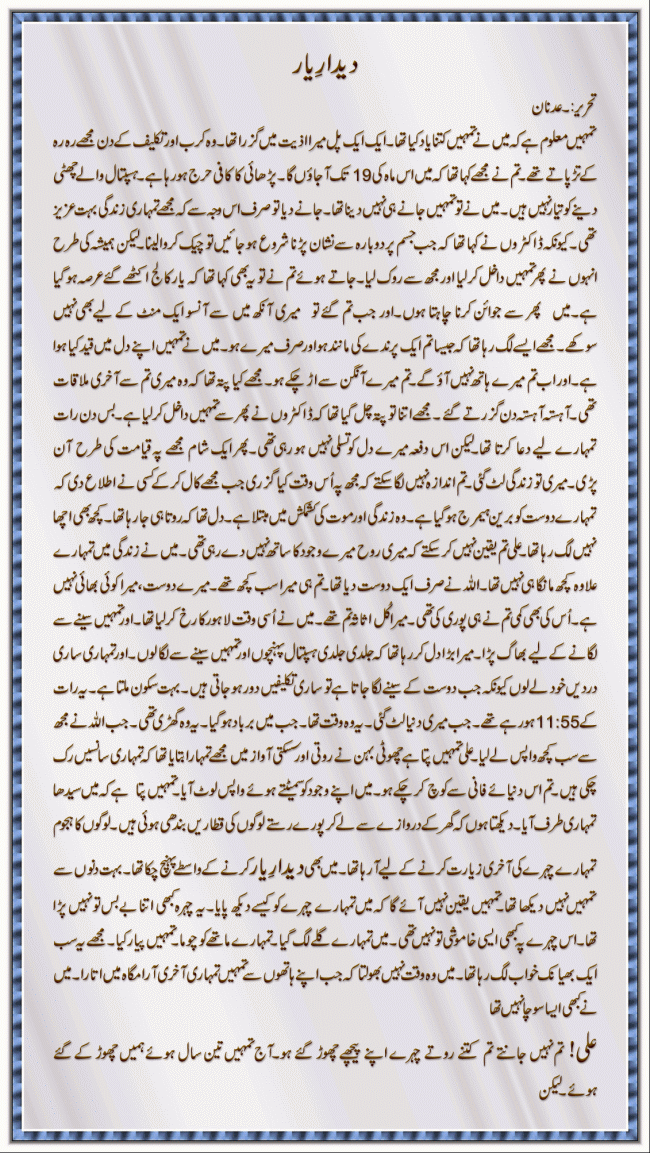 دیدارِ یار
تحریر:۔عدنان
تمہیں معلوم ہے کہ میں نے تمہیں کتنا یاد کیا تھا۔ ایک ایک پل میرا اذیت میں گزرا تھا۔ وہ کرب اور تکلیف کے دن مجھے رہ رہ
کے تڑپاتے تھے۔ تم نے مجھے کہا تھا کہ میں اس ماہ کی 19 تک آ جاؤں گا۔ پڑھائی کا کافی حرج ہو رہا ہے۔ ہسپتال والے چھٹی
دینے کو تیار نہیں ہیں۔ میں نے تو تمہیں جانے ہی نہیں دینا تھا۔ جانے دیا تو صرف اس وجہ سے کہ مجھے تمہاری زندگی بہت عزیز
تھی۔ کیونکہ ڈاکٹروں نے کہا تھا کہ جب جسم پر دوبارہ سے نشان پڑنا شروع ہو جائیں تو چیک کروا لینا۔ لیکن ہمیشہ کی طرح
انہوں نے پھر تمہیں داخل کر لیا اور مجھ سے روک لیا۔ جاتے ہوئے تم نے تو یہ بھی کہا تھا کہ یار کالج اکٹھے گئے عرصہ ہو گیا
ہے۔ میں پھر سے جوائن کرنا چاہتا ہوں۔ اور جب تم گئے تو میری آنکھ میں سے آنسو ایک منٹ کے لیے بھی نہیں
سوکھے۔ مجھے ایسے لگ رہا تھا کہ جیسا تم ایک پرندے کی مانند ہو اور صرف میرے ہو۔ میں نے تمہیں اپنے دل میں قید کیا ہوا
ہے۔ اور اب تم میرے ہاتھ نہیں آؤ گے۔ تم میرے آنگن سے اڑ چکے ہو۔ مجھے کیا پتہ تھا کہ وہ میری تم سے آخری ملاقات
تھی۔ آہستہ آہستہ دن گزرتے گئے۔ مجھے اتنا تو پتہ چل گیا تھا کہ ڈاکٹروں نے پھر سے تمہیں داخل کر لیا ہے۔ بس دن رات
تمہارے لیے دعا کرتا تھا۔ لیکن اس دفعہ میرے دل کو تسلی نہیں ہو رہی تھی۔ پھر ایک شام مجھے پہ قیامت کی طرح آن
پڑی۔ میری تو زندگی لٹ گئی۔ تم اندازہ نہیں لگا سکتے کہ مجھ پہ اُس وقت کیا گزری جب مجھے کال کر کے کسی نے اطلاع دی کہ
تمہارے دوست کو برین ہیمرج ہو گیا ہے۔ وہ زندگی اور موت کی کشمکش میں مبتلا ہے۔ دل تھا کہ روتا ہی جا رہا تھا۔ کچھ بھی اچھا
نہیں لگ رہا تھا۔ علی تم یقین نہیں کر سکتے کہ میری روح میرے وجود کا ساتھ نہیں دے رہی تھی۔ میں نے زندگی میں تمہارے
علاوہ کچھ مانگا ہی نہیں تھا۔ اللہ نے صرف ایک دوست دیا تھا۔ تم ہی میرا سب کچھ تھے۔ میرے دوست، میرا کوئی بھائی نہیں
ہے۔ اُس کی بھی کمی تم نے ہی پوری کی تھی۔ میرا کُل اثاثہ تم تھے۔ میں نے اُسی وقت لاہور کا رخ کر لیا تھا۔ اور تمہیں سینے سے
لگانے کے لیے بھاگ پڑا۔ میرا بڑا دل کر رہا تھا کہ جلدی جلدی ہسپتال پہنچوں اور تمہیں سینے سے لگا لوں۔ اور تمہاری ساری
دردیں خود لے لوں کیونکہ جب دوست کے سینے لگا جاتا ہے تو ساری تکلیفیں دور ہو جاتی ہیں۔ بہت سکون ملتا ہے۔ یہ رات
کے 11:55 ہو رہے تھے۔ جب میری دنیا لٹ گئی۔ یہ وہ وقت تھا۔ جب میں برباد ہو گیا۔ یہ وہ گھڑی تھی۔ جب اللہ نے مجھ
سے سب کچھ واپس لے لیا۔ علی تمہیں پتا ہے چھوٹی بہن نے روتی اور سسکتی آواز میں مجھے تمہارا بتایا تھا کہ تمہاری سانسیں رک
چکی ہیں۔ تم اس دنیائے فانی سے کوچ کر چکے ہو۔ میں اپنے وجود کو سمیٹتے ہوئے واپس لوٹ آیا۔ تمہیں پتا ہے کہ میں سیدھا
تمہاری طرف آیا۔ دیکھتا ہوں کہ گھر کے دروازے سے لے کر پورے رستے لوگوں کی قطاریں بندھی ہوئی ہیں۔ لوگوں کا ہجوم
تمہارے چہرے کی آخری زیارت کرنے کے لیے آ رہا تھا۔ میں بھی دیدارِ یار کرنے کے واسطے پہنچ چکا تھا۔ بہت دنوں سے
تمہیں نہیں دیکھا تھا۔ تمہیں یقین نہیں آئے گا کہ میں تمہارے چہرے کو کیسے دیکھ پایا۔ یہ چہرہ کبھی اتنا بے بس تو نہیں پڑا
تھا۔ اس چہرے پہ کبھی ایسی خاموشی تو نہیں تھی۔ میں تمہارے گلے لگ گیا۔ تمہارے ماتھے کو چوما۔ تمہیں پیار کیا۔ مجھے یہ سب
ایک بھیانک خواب لگ رہا تھا۔ میں وہ وقت نہیں بھولتا کہ جب اپنے ہاتھوں سے تمہیں تمہاری آخری آرامگاہ میں اتارا۔ میں
نے کبھی ایسا سوچا نہیں تھا
علی! تم نہیں جانتے تم کتنے روتے چہرے اپنے پیچھے چھوڑ گئے ہو۔ آج تمہیں تین سال ہوئے ہمیں چھوڑ کے گئے
ہوئے۔ لیکن